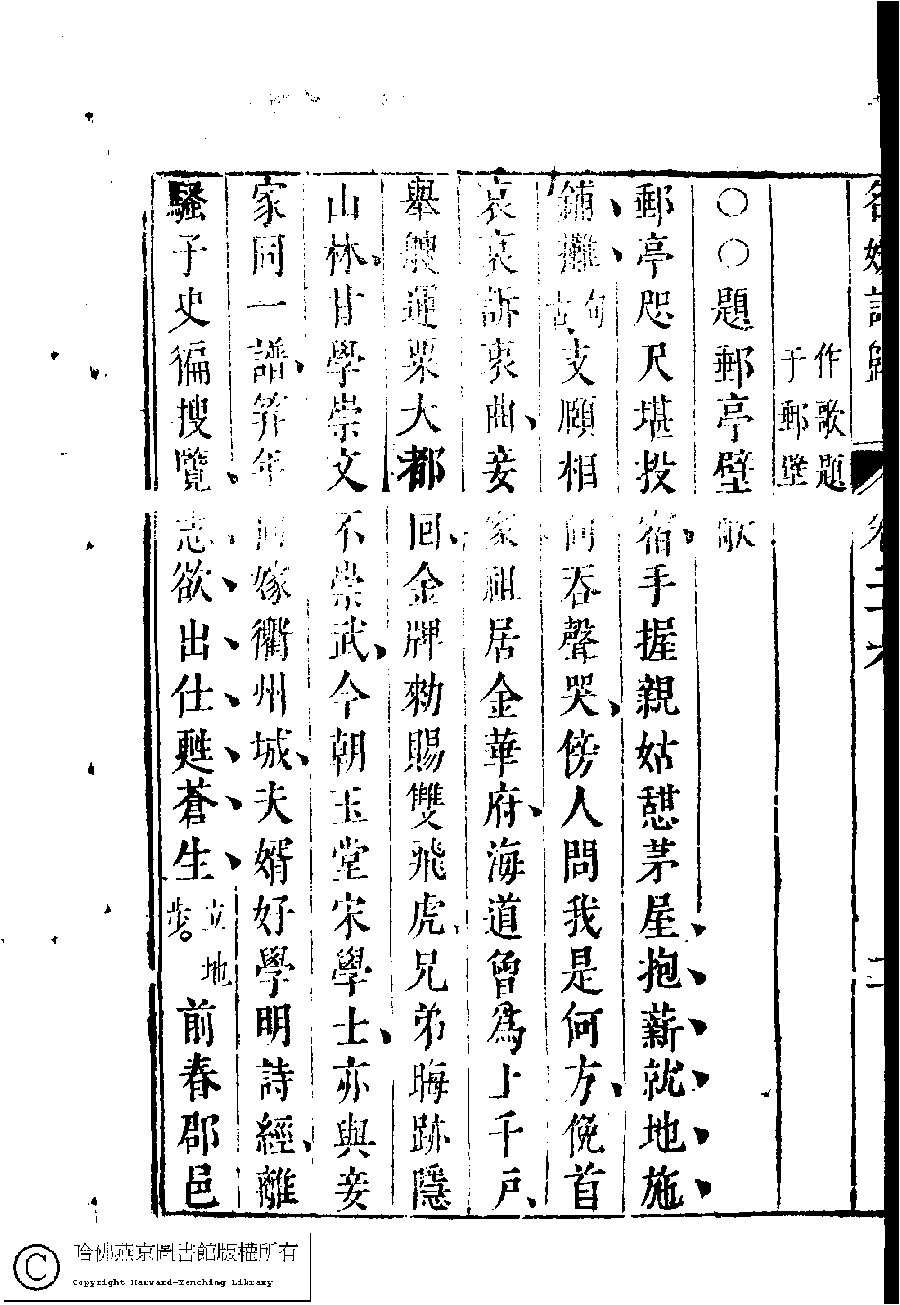 名媛詩歸 卷二
作歌題
于郵壁
○○題郵亭壁歌
郵亭咫尺堪投宿手握親姑憩茅屋抱薪就地施
鋪攤句古支頤相向吞聲哭傍人問我是何方俛首
哀哀訴衷曲妾家祖居金華府海道曾爲上千戶
舉艘運粟大都回金牌勑賜雙飛虎兄弟晦跡隱
山林甘學崇文不崇武今朝玉堂宋學士亦與妾
家同一譜筭年向嫁衢州城夫婿好學明詩經離
騷子史徧搜覽志欲出仕甦蒼生立地步前春郡邑
哈佛燕京圖書館版權所有
Copyright Harvard-Yenching Library